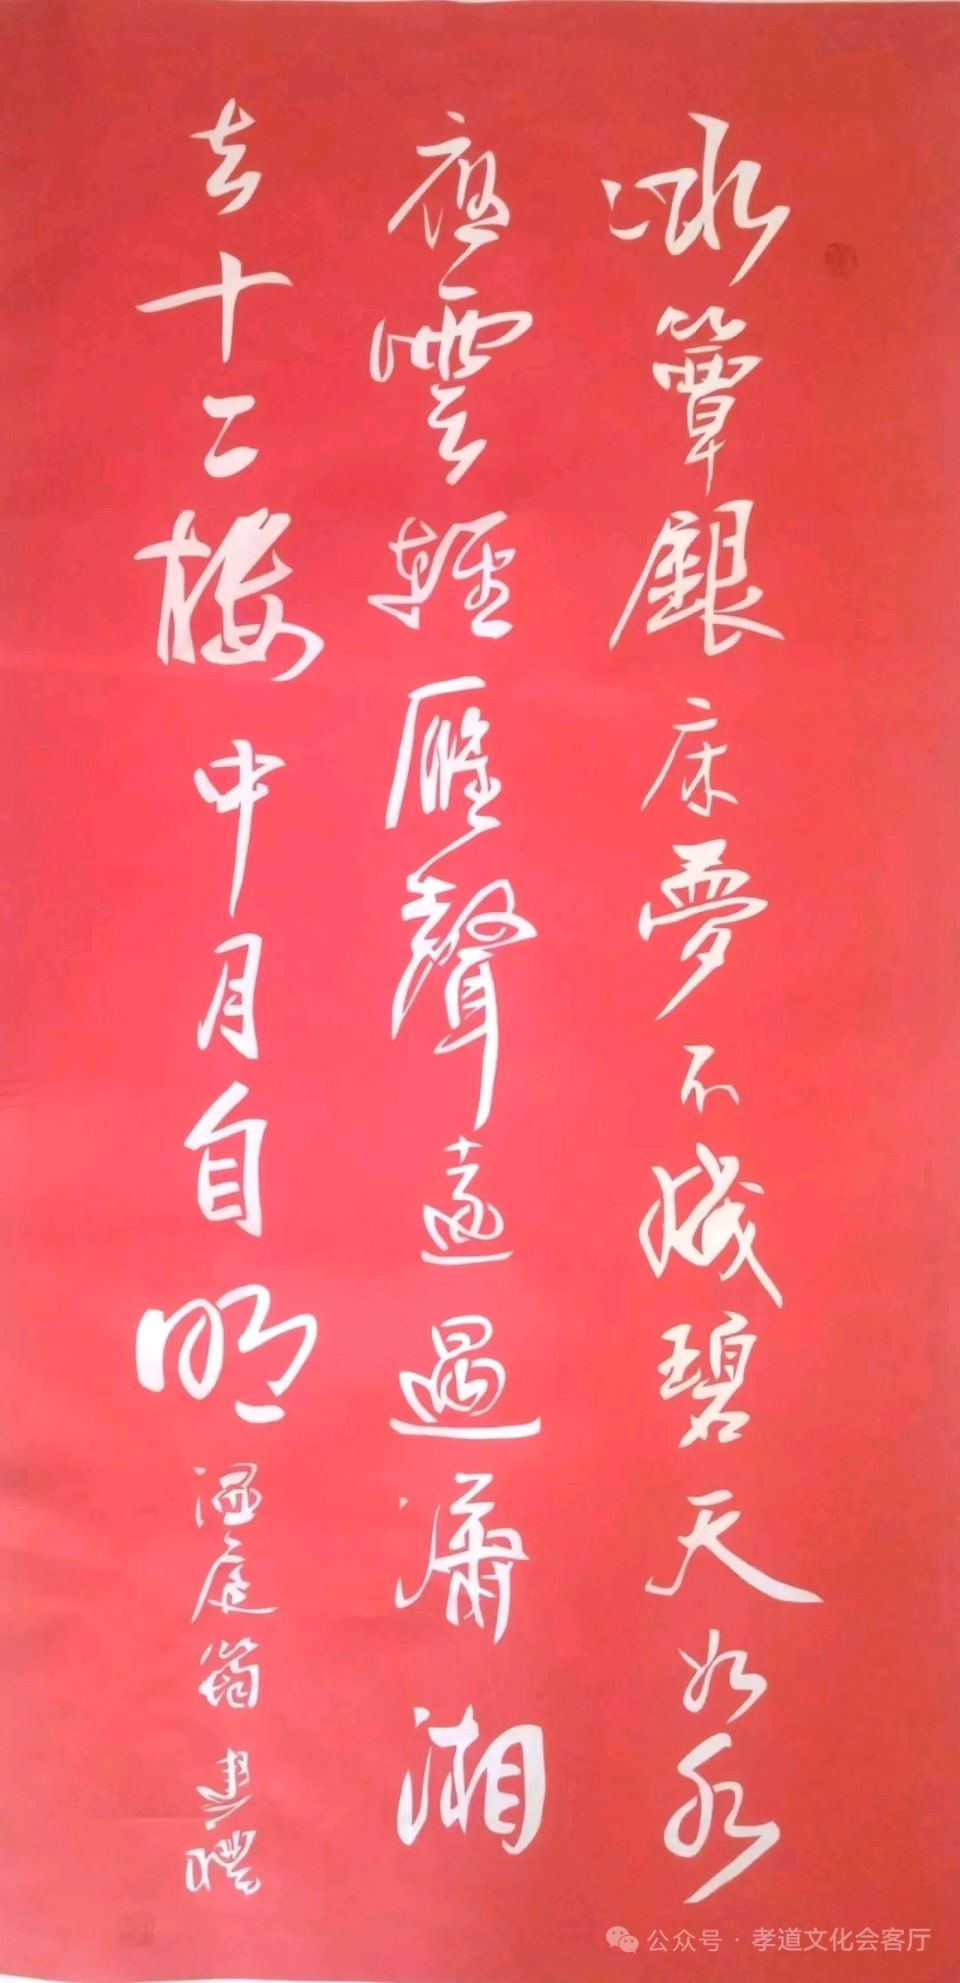 冰簟銀床夢不成碧天如水
夜雲輕雁聲遠過瀟湘
去十二樓中月自明
温庭筠 建
公众号 · 孝道文化会客厅